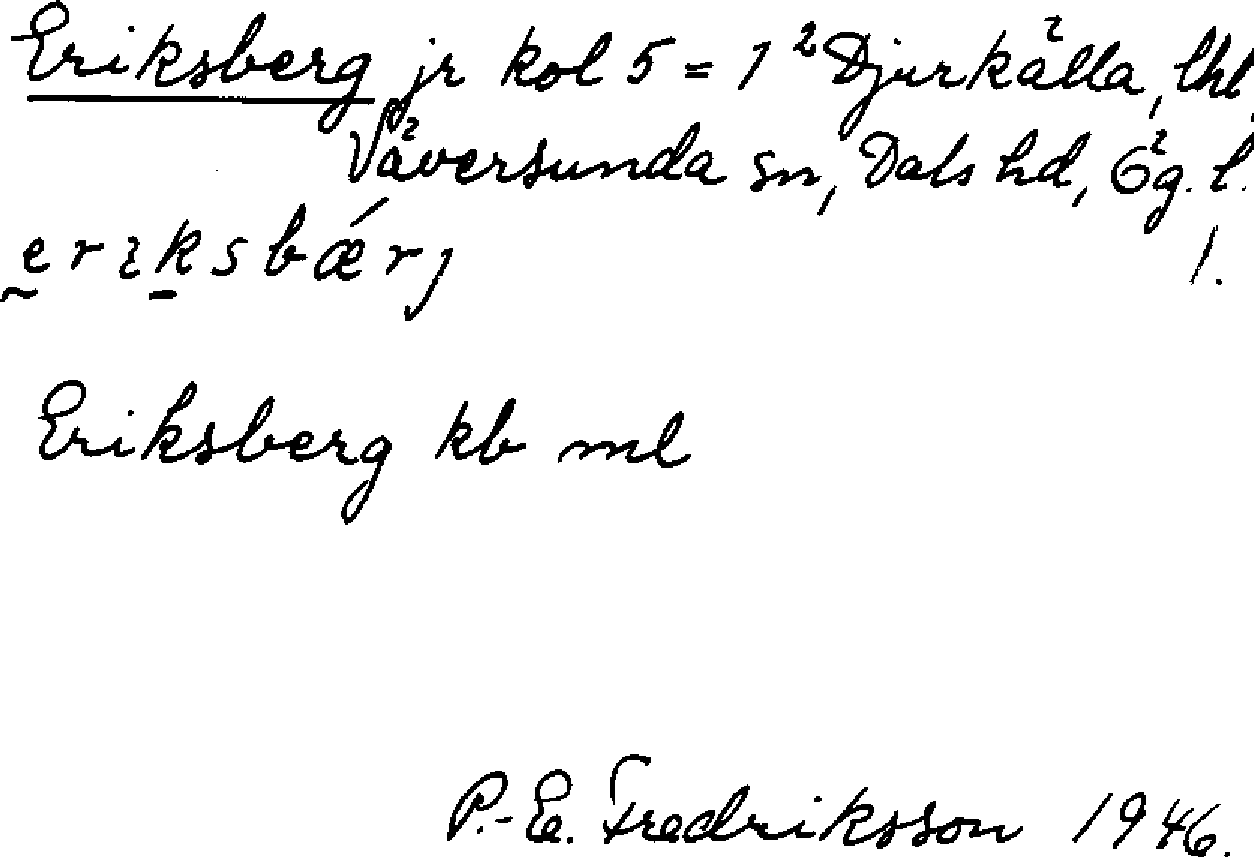 Eriksberg jr kol 5 = 1² Djurkälla, lht
Väversunda sn, Dals hd, Ög. l.
1.
eriksbǽrj
Eriksberg kb ml
P.-E. Fredriksson 1946.